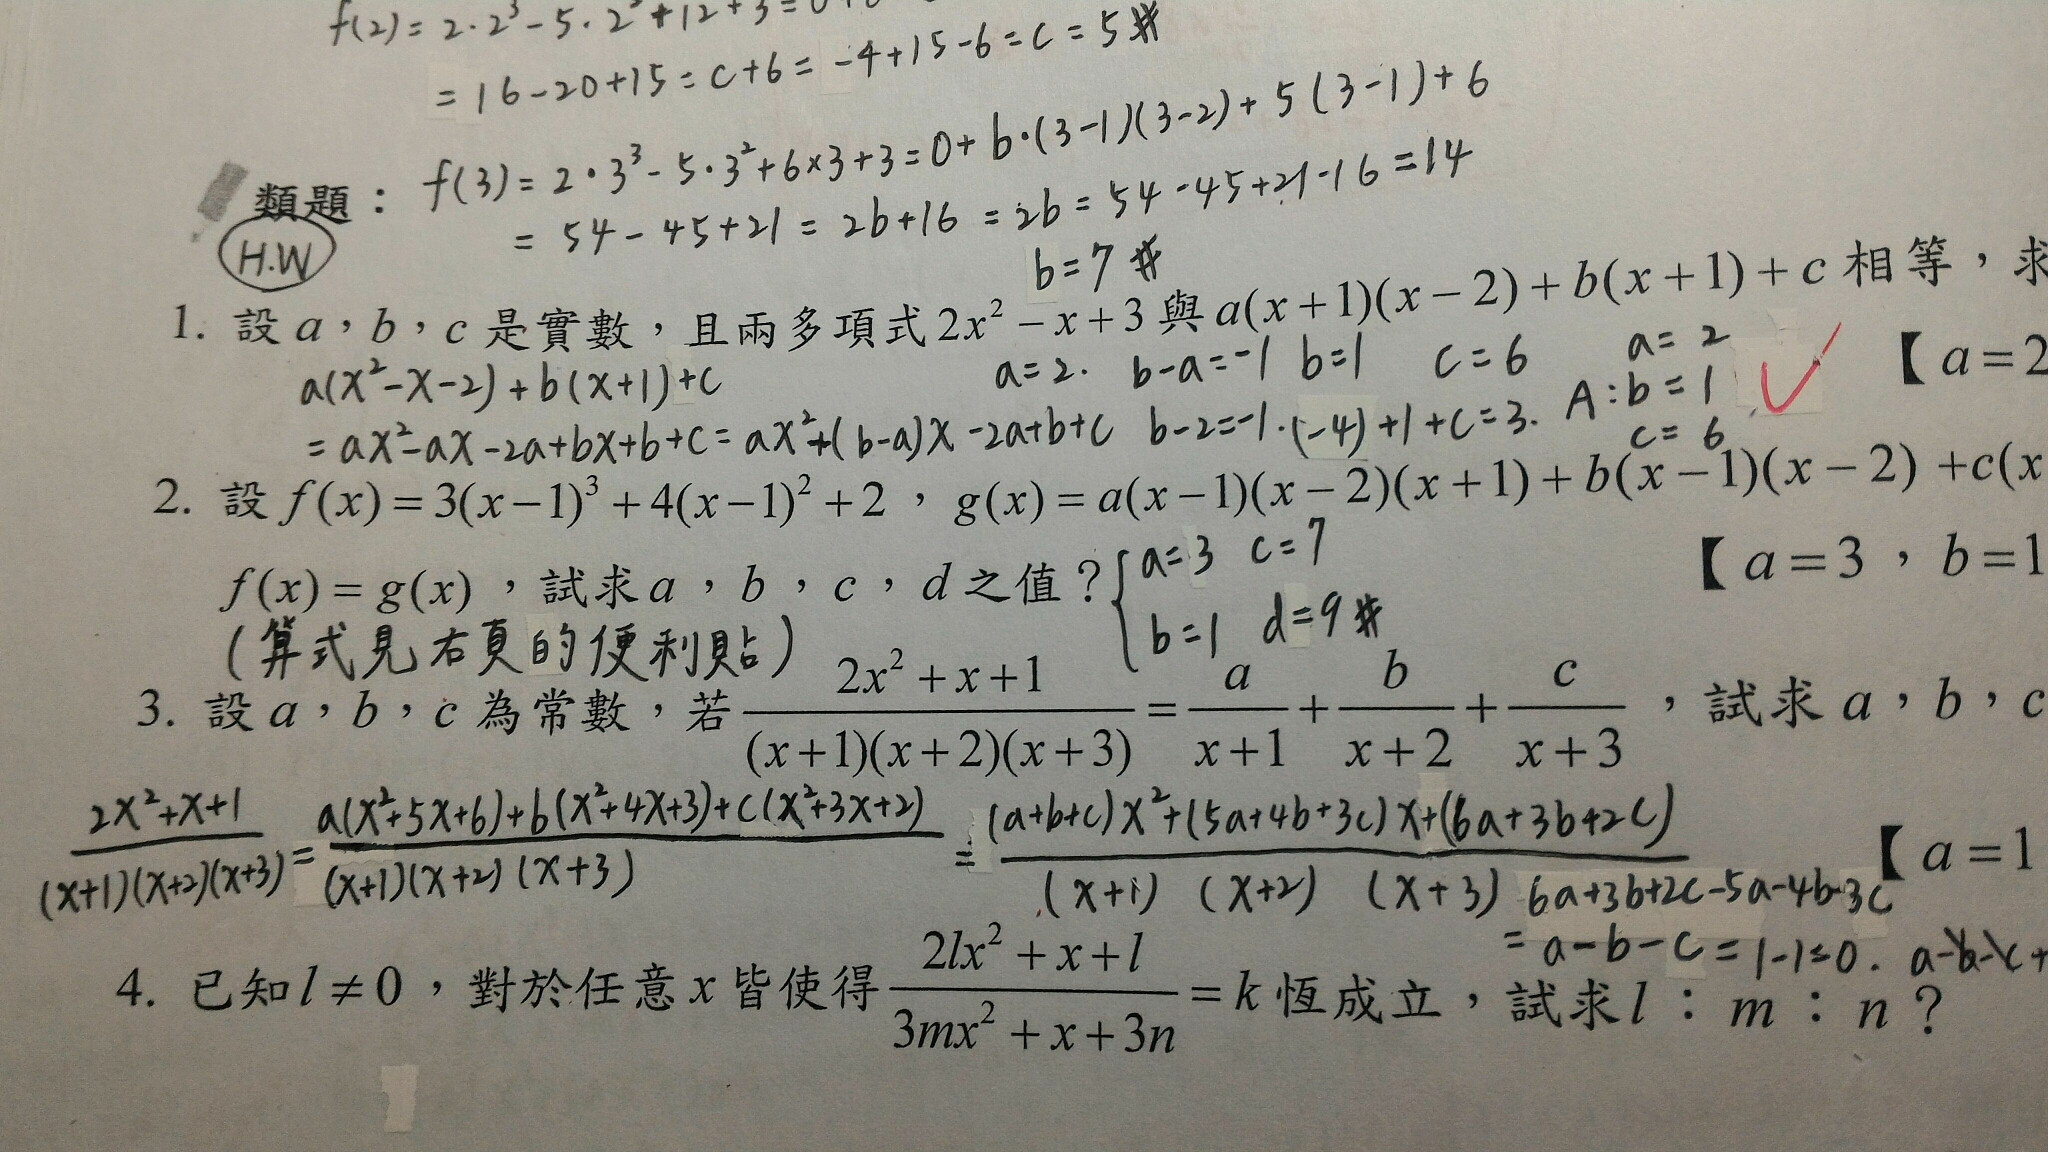 f(2) = 2·2³ - 5·2² + 12 + 3 = 0 + 0
= 16 - 20 + 15 = c + 6 = -4 + 15 - 6 = c = 5 #
類題： f(3) = 2·3³ - 5·3² + 6×3 + 3 = 0 + b·(3-1)(3-2) + 5(3-1) + 6
H.W = 54 - 45 + 21 = 2b + 16 = 2b = 54 - 45 + 21 - 16 = 14
b = 7 #
1. 設 a，b，c 是實數，且兩多項式 2x² - x + 3 與 a(x+1)(x-2) + b(x+1) + c 相等，求
a(x²-x-2) + b(x+1) + c a = 2. b-a = -1 b = 1 c = 6 A: a = 2 b = 1 c = 6 【 a = 2
= ax² - ax - 2a + bx + b + c = ax² + (b-a)x - 2a + b + c b-2 = -1. (-4) + 1 + c = 3.
2. 設 f(x) = 3(x-1)³ + 4(x-1)² + 2 ， g(x) = a(x-1)(x-2)(x+1) + b(x-1)(x-2) + c(x
f(x) = g(x) ，試求 a，b，c，d 之值？ { a=3 c=7 b=1 d=9 # 【 a = 3 ， b = 1
(算式見右頁的便利貼)
3. 設 a，b，c 為常數，若 (2x² + x + 1)/((x+1)(x+2)(x+3)) = a/(x+1) + b/(x+2) + c/(x+3) ，試求 a，b，c
(2x²+x+1)/((x+1)(x+2)(x+3)) = (a(x²+5x+6)+b(x²+4x+3)+c(x²+3x+2))/((x+1)(x+2)(x+3)) = ((a+b+c)x²+(5a+4b+3c)x+(6a+3b+2c))/((x+1)(x+2)(x+3)) 【 a = 1
6a+3b+2c-5a-4b-3c
= a-b-c = 1-1=0. a-b-c+
4. 已知 l ≠ 0 ，對於任意 x 皆使得 (2lx² + x + l)/(3mx² + x + 3n) = k 恆成立，試求 l : m : n ?